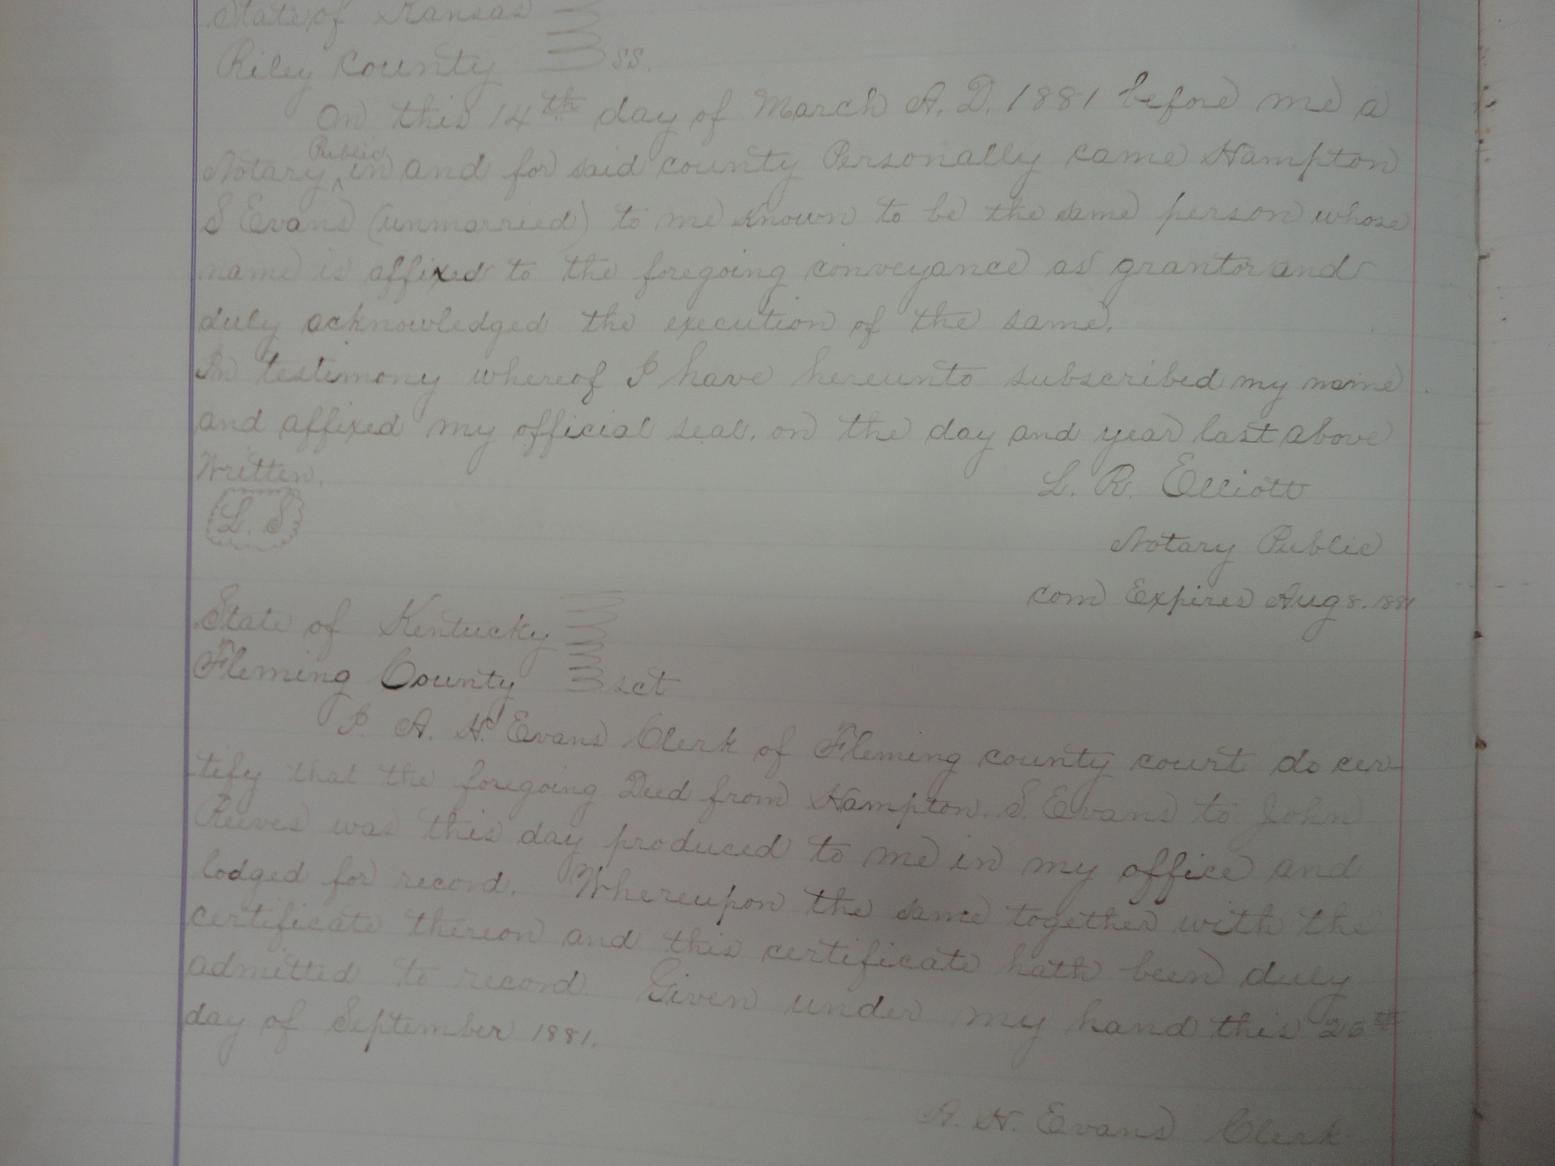 State of Kansas
Riley County ss.
On this 14th day of March A.D. 1881 before me a
Notary Public in and for said county Personally came Hampton
S Evans (unmarried) to me known to be the same person whose
name is affixed to the foregoing conveyance as grantor and
duly acknowledged the execution of the same.
In testimony whereof I have hereunto subscribed my name
and affixed my official seal, on the day and year last above
Written.
L. R. Elliott
L. S
Notary Public
com Expires Aug 8. 1881
State of Kentucky
Fleming County sct
I. A. H. Evans Clerk of Fleming county court do cer-
tify that the foregoing Deed from Hampton. S. Evans to John
Reeves was this day produced to me in my office and
lodged for record. Whereupon the same together with the
certificate thereon and this certificate hath been duly
admitted to record Given under my hand this 26th
day of September 1881.
A. H. Evans Clerk